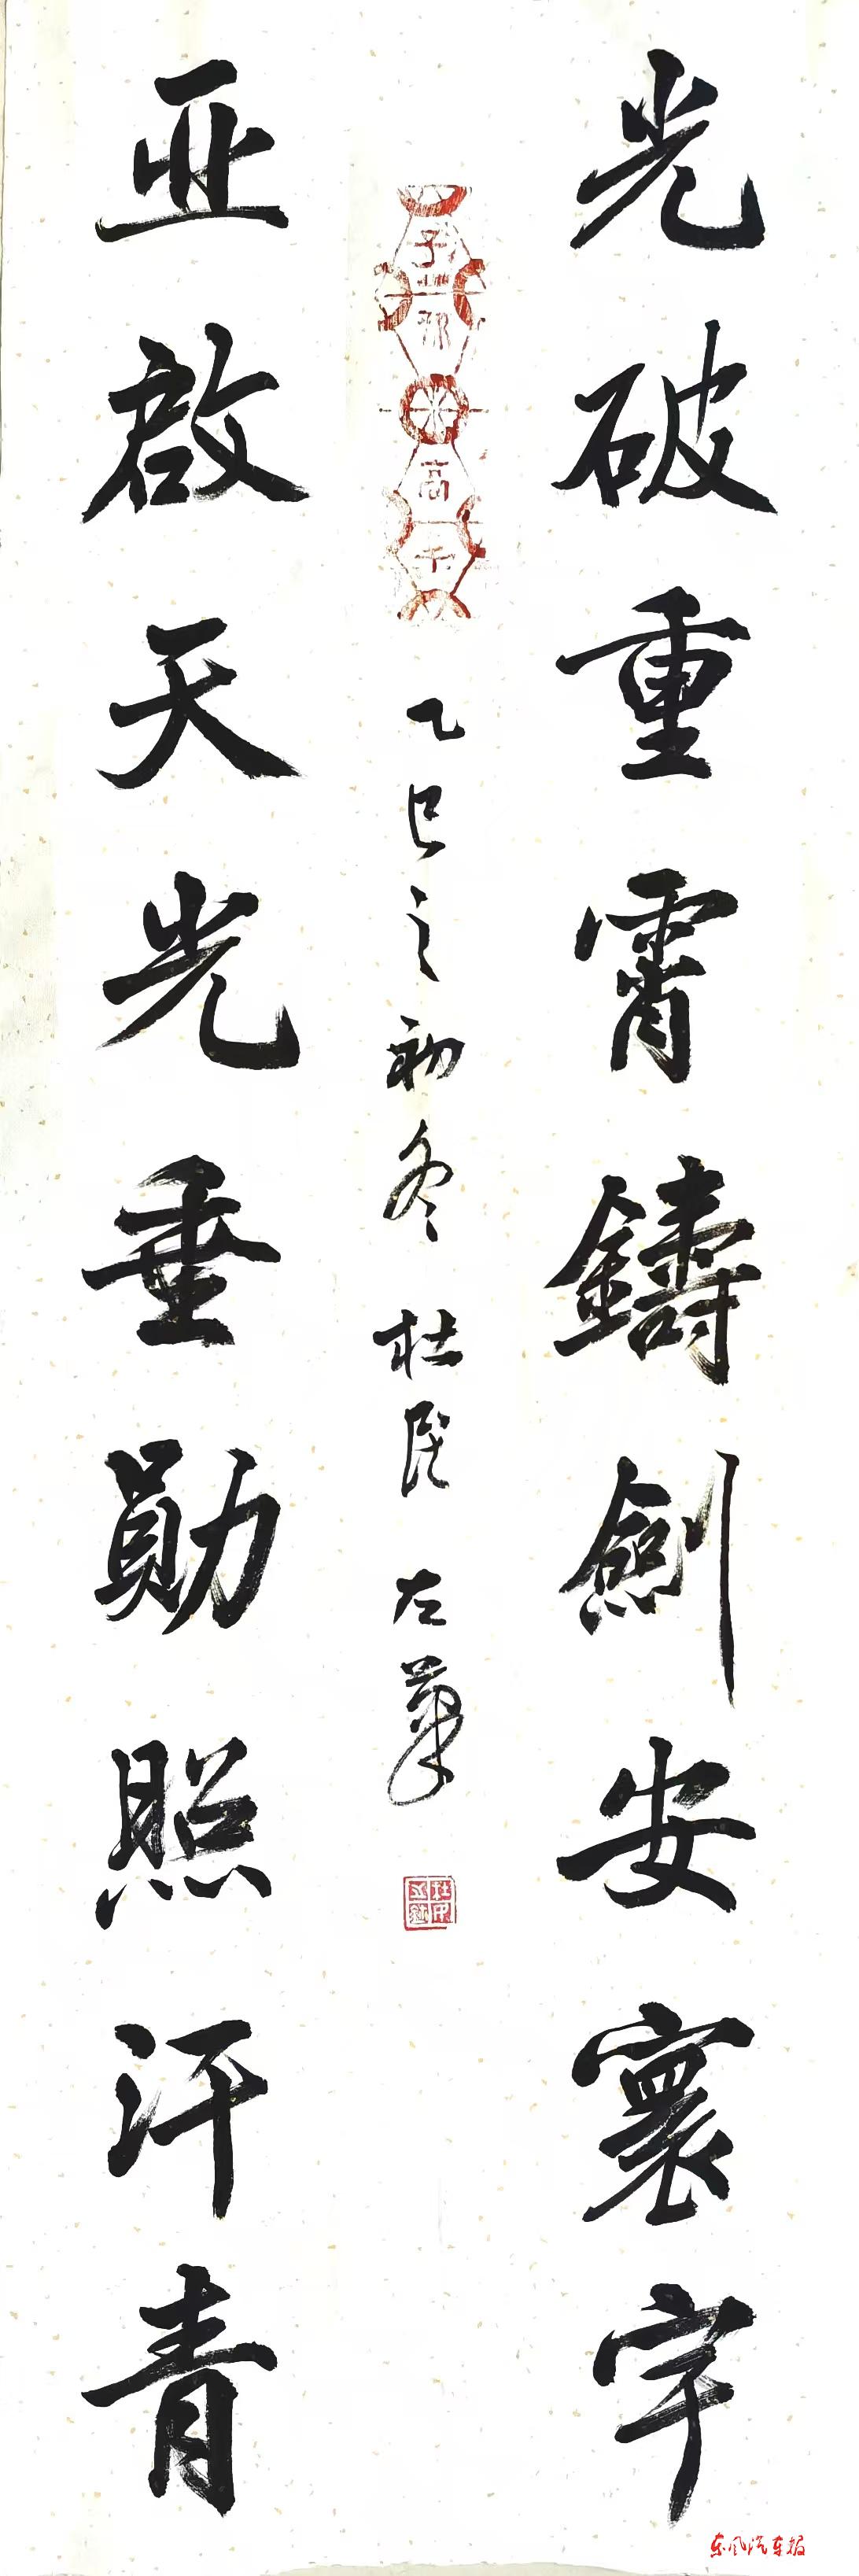 光破重霄鑄劍安寰宇
乙巳之初冬 杜民 左筆
亚啟天光垂勋照汗青
东风汽车报